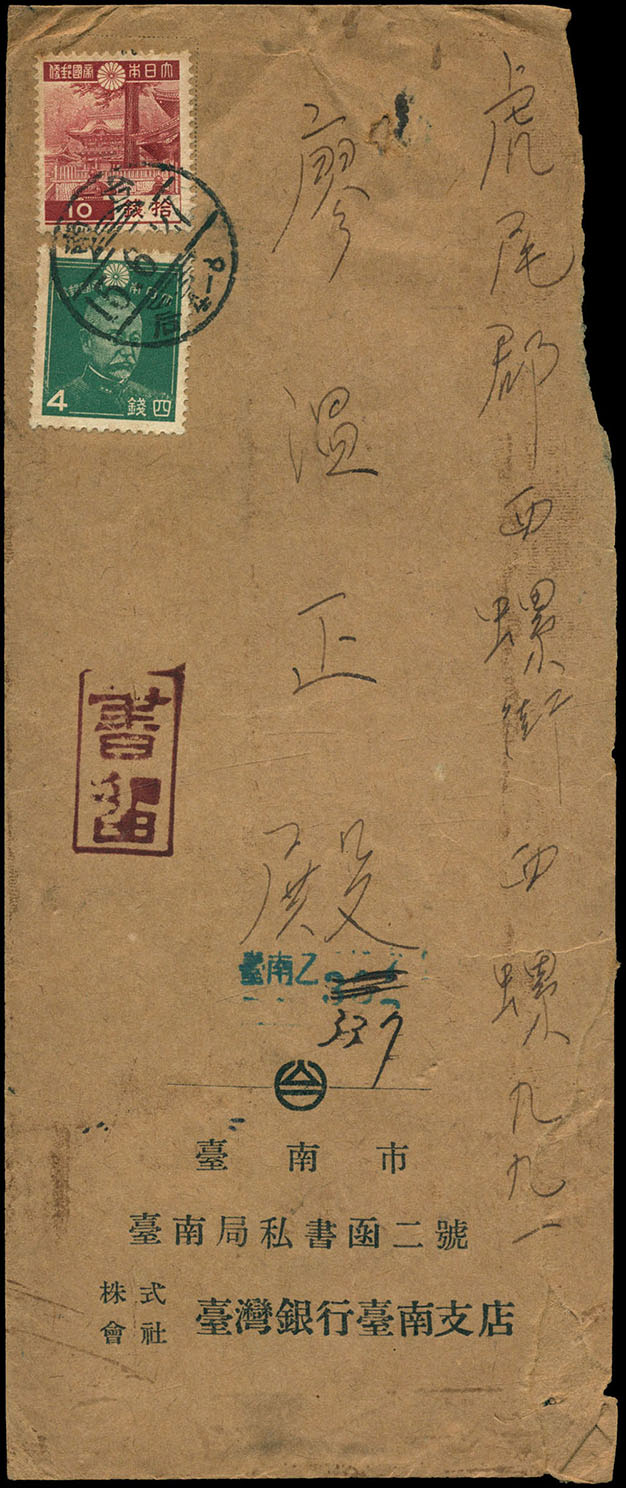 大日本帝國郵便
10 拾錢
大日本帝國郵便
4 四錢
虎尾郡西螺街西螺九九一
廖温正殿
書留
臺南乙
337
臺南市
臺南局私書函二號
株式會社 臺灣銀行臺南支店